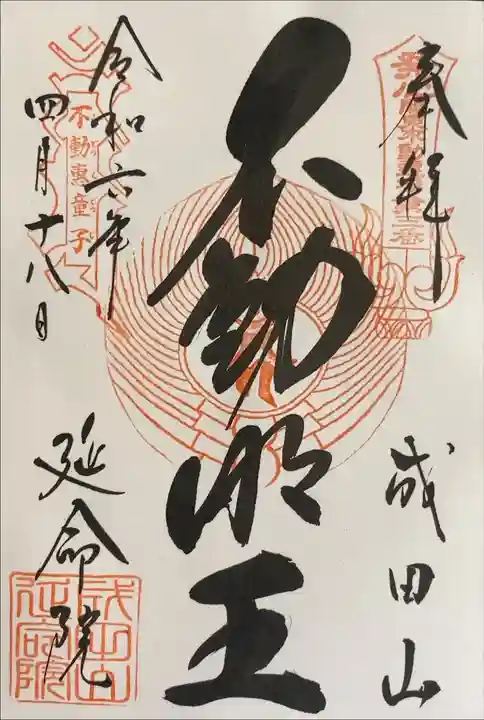 奉拝
成田山
不動明王
令和六年
四月十八日
不動恵童子
延命院
成田山
延命院